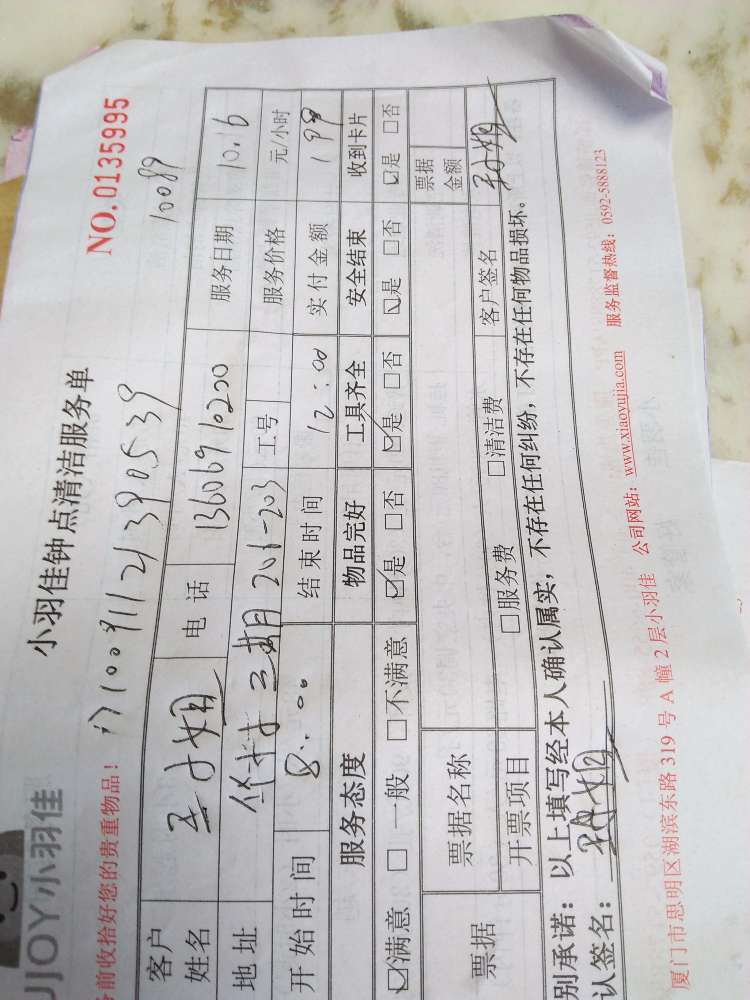 UJOY小羽佳
小羽佳钟点清洁服务单
NO.0135995
前收拾好您的贵重物品！
10089
客户姓名
电话 13606910200
服务日期 10.16
地址
三期 201-203
工号
服务价格
元/小时
开始时间 8:00
结束时间 12:00
实付金额 199
服务态度 物品完好 工具齐全 安全结束 收到卡片
☑满意 □一般 □不满意 ☑是 □否 ☑是 □否 ☑是 □否 ☑是 □否
票据
票据名称
票据金额
开票项目 □服务费 □清洁费
客户签名
别承诺：以上填写经本人确认属实，不存在任何纠纷，不存在任何物品损坏。
认签名：
厦门市思明区湖滨东路 319 号 A 幢 2 层小羽佳 公司网站：www.xiaoyujia.com 服务监督热线：0592-5888123